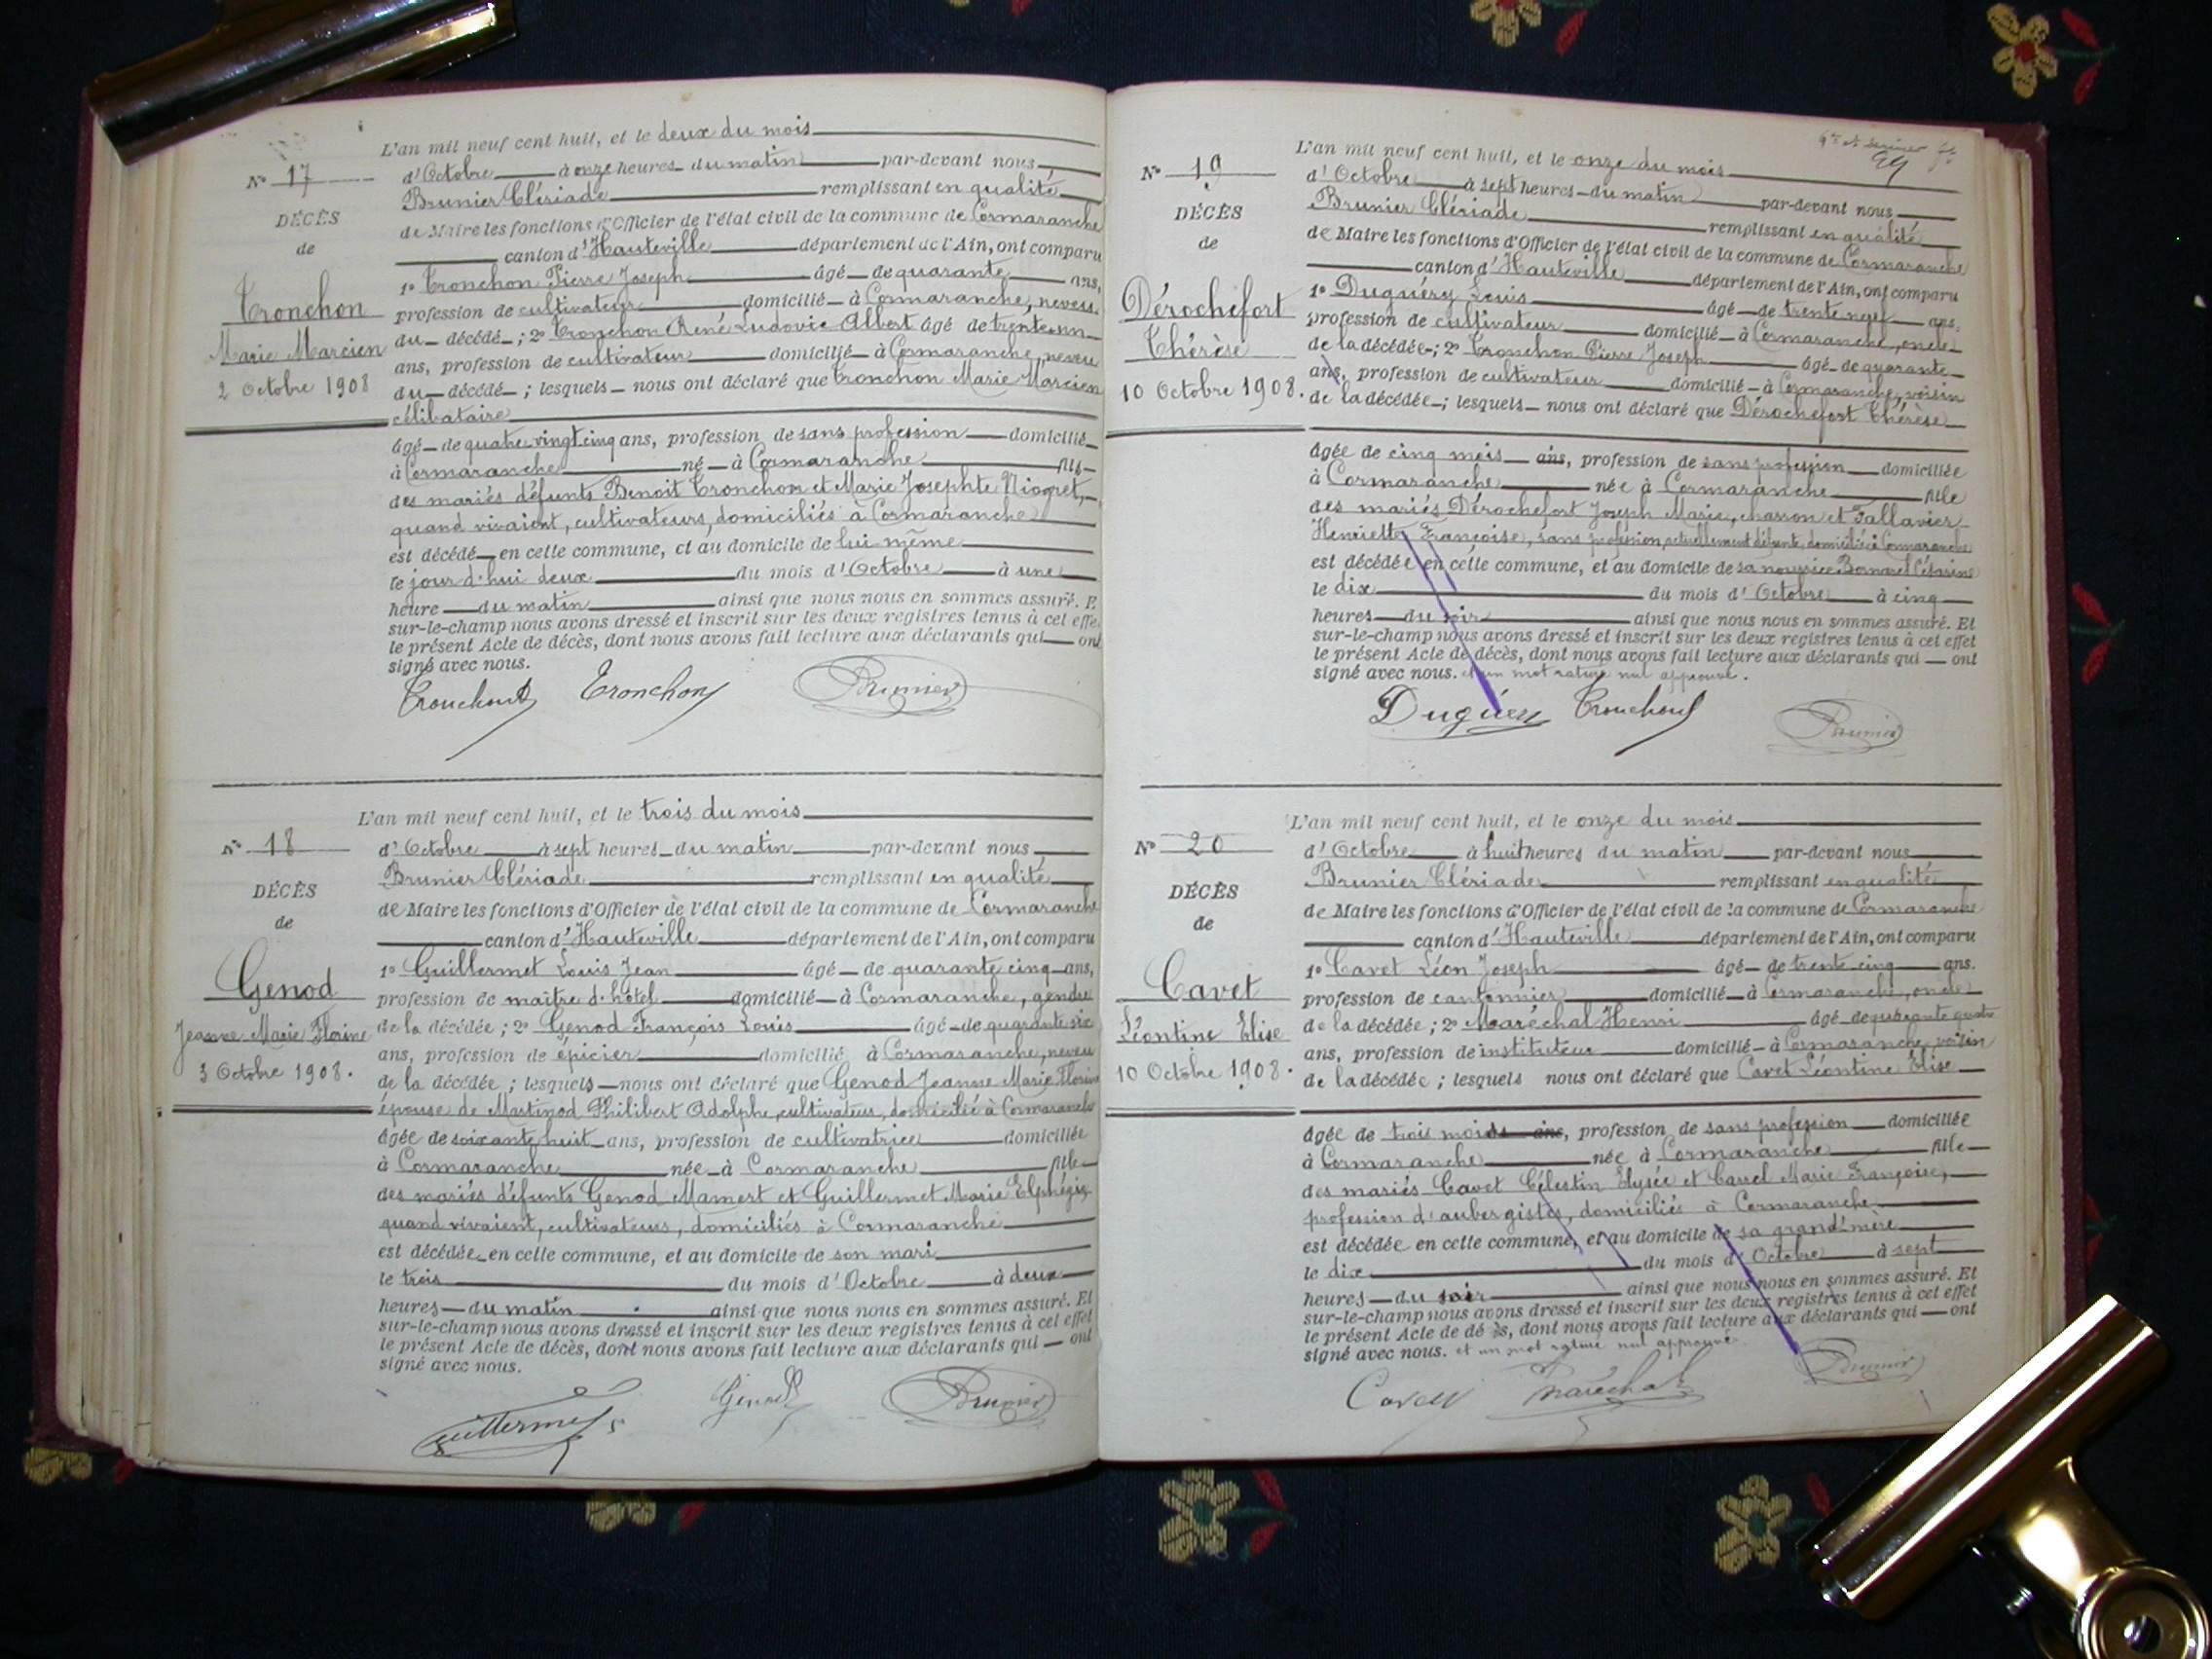 L'an mil neuf cent huit, et le deux du mois
N° 17
d'Octobre à onze heures du matin par-devant nous
Brunier Clériade remplissant en qualité
DÉCÈS
de Maire les fonctions d'Officier de l'état civil de la commune de Cormaranche
de
canton d'Hauteville département de l'Ain, ont comparu
1° Tronchon Pierre Joseph âgé de quarante ans,
Tronchon
profession de cultivateur domicilié à Cormaranche, neveu
Marie Marcien
du décédé ; 2° Tronchon René Ludovic Albert âgé de trente un
ans, profession de cultivateur domicilié à Cormaranche, neveu
2 Octobre 1908
du décédé ; lesquels nous ont déclaré que Tronchon Marie Marcien
célibataire
âgé de quatre vingt cinq ans, profession de sans profession domicilié
à Cormaranche né à Cormaranche fils
des mariés défunts Benoit Tronchon et Marie Josephte Niogret,
quand vivaient, cultivateurs, domiciliés à Cormaranche
est décédé en cette commune, et au domicile de lui même
le jour d'hui deux du mois d'Octobre à une
heure du matin ainsi que nous nous en sommes assuré. E
sur-le-champ nous avons dressé et inscrit sur les deux registres tenus à cet effe
le présent Acte de décès, dont nous avons fait lecture aux déclarants qui ont
signé avec nous.
Tronchon Tronchon Brunier
L'an mil neuf cent huit, et le trois du mois
N° 18
d'Octobre à sept heures du matin par-devant nous
Brunier Clériade remplissant en qualité
DÉCÈS
de Maire les fonctions d'Officier de l'état civil de la commune de Cormaranche
de
canton d'Hauteville département de l'Ain, ont comparu
1° Guillermet Louis Jean âgé de quarante cinq ans,
Genod
profession de maître d'hôtel domicilié à Cormaranche, gendre
Jeanne Marie Florine
de la décédée ; 2° Genod François Louis âgé de quarante six
ans, profession de épicier domicilié à Cormaranche, neveu
3 Octobre 1908.
de la décédée ; lesquels nous ont déclaré que Genod Jeanne Marie Florine
épouse de Martinod Philibert Adolphe, cultivateur, domicilié à Cormaranche
âgée de soixante huit ans, profession de cultivatrice domiciliée
à Cormaranche née à Cormaranche fille
des mariés défunts Genod Mamert et Guillermet Marie
quand vivaient, cultivateurs, domiciliés à Cormaranche
est décédée en cette commune, et au domicile de son mari
le trois du mois d'Octobre à deux
heures du matin ainsi que nous nous en sommes assuré. Et
sur-le-champ nous avons dressé et inscrit sur les deux registres tenus à cet effet
le présent Acte de décès, dont nous avons fait lecture aux déclarants qui ont
signé avec nous.
Guillermet Genod Brunier
L'an mil neuf cent huit, et le onze du mois
N° 19
d'Octobre à sept heures du matin par-devant nous
Brunier Clériade remplissant en qualité
DÉCÈS
de Maire les fonctions d'Officier de l'état civil de la commune de Cormaranche
de
canton d'Hauteville département de l'Ain, ont comparu
1° Duguéry Louis âgé de trente neuf ans,
Dérochefort
profession de cultivateur domicilié à Cormaranche, oncle
Thérèse
de la décédée ; 2° Tronchon Pierre Joseph âgé de quarante
ans, profession de cultivateur domicilié à Cormaranche, voisin
10 Octobre 1908.
de la décédée ; lesquels nous ont déclaré que Dérochefort Thérèse
âgée de cinq mois ans, profession de sans profession domiciliée
à Cormaranche née à Cormaranche fille
des mariés Dérochefort Joseph Marie, charron et Fallavier
Henriette Françoise, sans profession, actuellement défunte, domiciliés à Cormaranche
est décédée en cette commune, et au domicile de sa nourrice Césarine
le dix du mois d'Octobre à cinq
heures du soir ainsi que nous nous en sommes assuré. Et
sur-le-champ nous avons dressé et inscrit sur les deux registres tenus à cet effet
le présent Acte de décès, dont nous avons fait lecture aux déclarants qui ont
signé avec nous. et un mot raturé nul approuvé.
Duguéry Tronchon Brunier
L'an mil neuf cent huit, et le onze du mois
N° 20
d'Octobre à huit heures du matin par-devant nous
Brunier Clériade remplissant en qualité
DÉCÈS
de Maire les fonctions d'Officier de l'état civil de la commune de Cormaranche
de
canton d'Hauteville département de l'Ain, ont comparu
1° Cavet Léon Joseph âgé de trente cinq ans.
Cavet
profession de cantonnier domicilié à Cormaranche, oncle
Léontine Elise
de la décédée ; 2° Maréchal Henri âgé de quarante quatre
ans, profession de instituteur domicilié à Cormaranche, voisin
10 Octobre 1908.
de la décédée ; lesquels nous ont déclaré que Cavet Léontine Elise
âgée de trois mois ans, profession de sans profession domiciliée
à Cormaranche née à Cormaranche fille
des mariés Cavet Célestin Elysée et Marie Françoise,
profession d'aubergistes, domiciliés à Cormaranche
est décédée en cette commune, et au domicile de sa grand'mère
le dix du mois d'Octobre à sept
heures du soir ainsi que nous nous en sommes assuré. Et
sur-le-champ nous avons dressé et inscrit sur les deux registres tenus à cet effet
le présent Acte de décès, dont nous avons fait lecture aux déclarants qui ont
signé avec nous. et un mot raturé nul approuvé
Cavet Maréchal Brunier